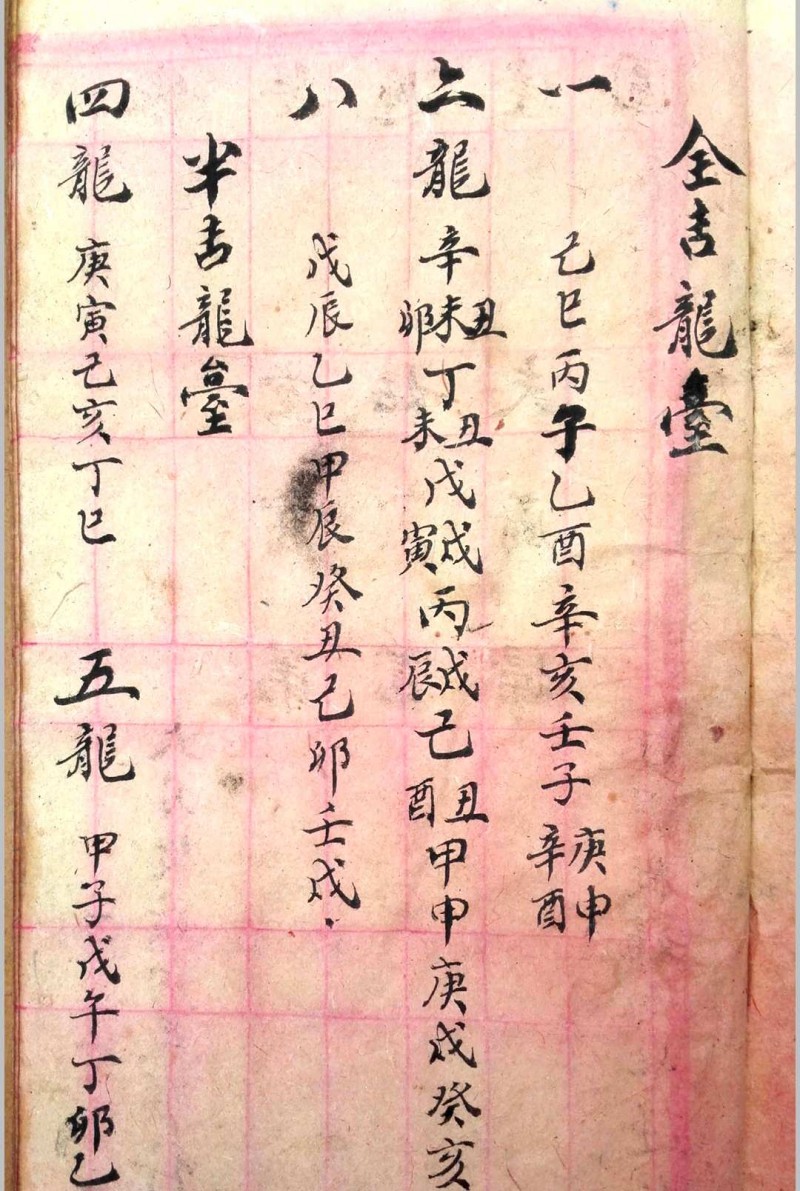 全吉龍臺
一 己巳丙午乙酉辛亥壬子庚申辛酉
六龍 辛丑未卯丁丑未戊戌寅丙戌辰己丑酉甲申庚戌癸亥
八 戊辰乙巳甲辰癸丑己卯壬戌
半吉龍臺
四龍 庚寅己亥丁巳 五龍 甲子戊午丁卯乙